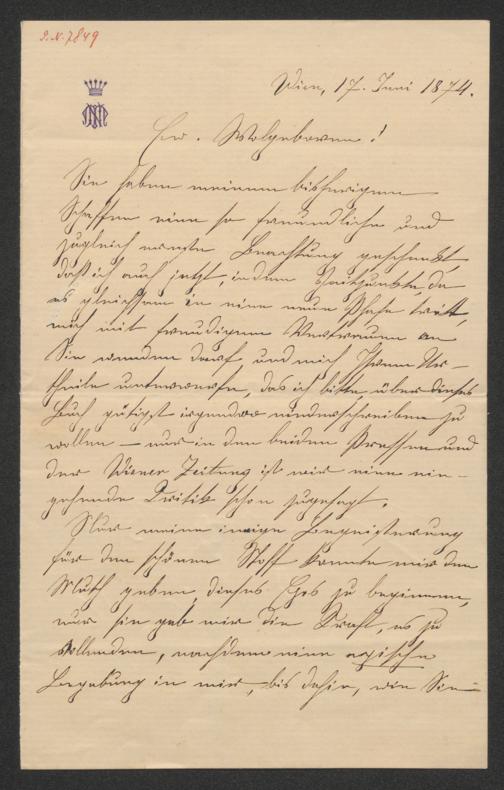 I.N. 7849
Wien, 17. Juni 1874.
Ew. Wolgeboren!
Sie haben meinem bisherigen
Schaffen eine so freundliche und
zugleich ernste Beachtung geschenkt,
daß ich auch jetzt, in dem Zeitpunkte, da
es gleichsam in eine neue Phase tritt,
mich mit freudigem Vertrauen an
Sie wenden darf und mich Ihrem Ur-
theile unterwerfe, das ich bitte über dieses
Buch gütigst irgendwo niederschreiben zu
wollen – nur in den beiden Pressen und
der Wiener Zeitung ist mir eine ein-
gehende Kritik schon zugesagt.
Nur meine innige Begeisterung
für den schönen Stoff konnte mir den
Muth geben, dieses Epos zu beginnen,
nur sie gab mir die Kraft, es zu
vollenden, nachdem eine epische
Begabung in mir, bis dahin, wie Sie